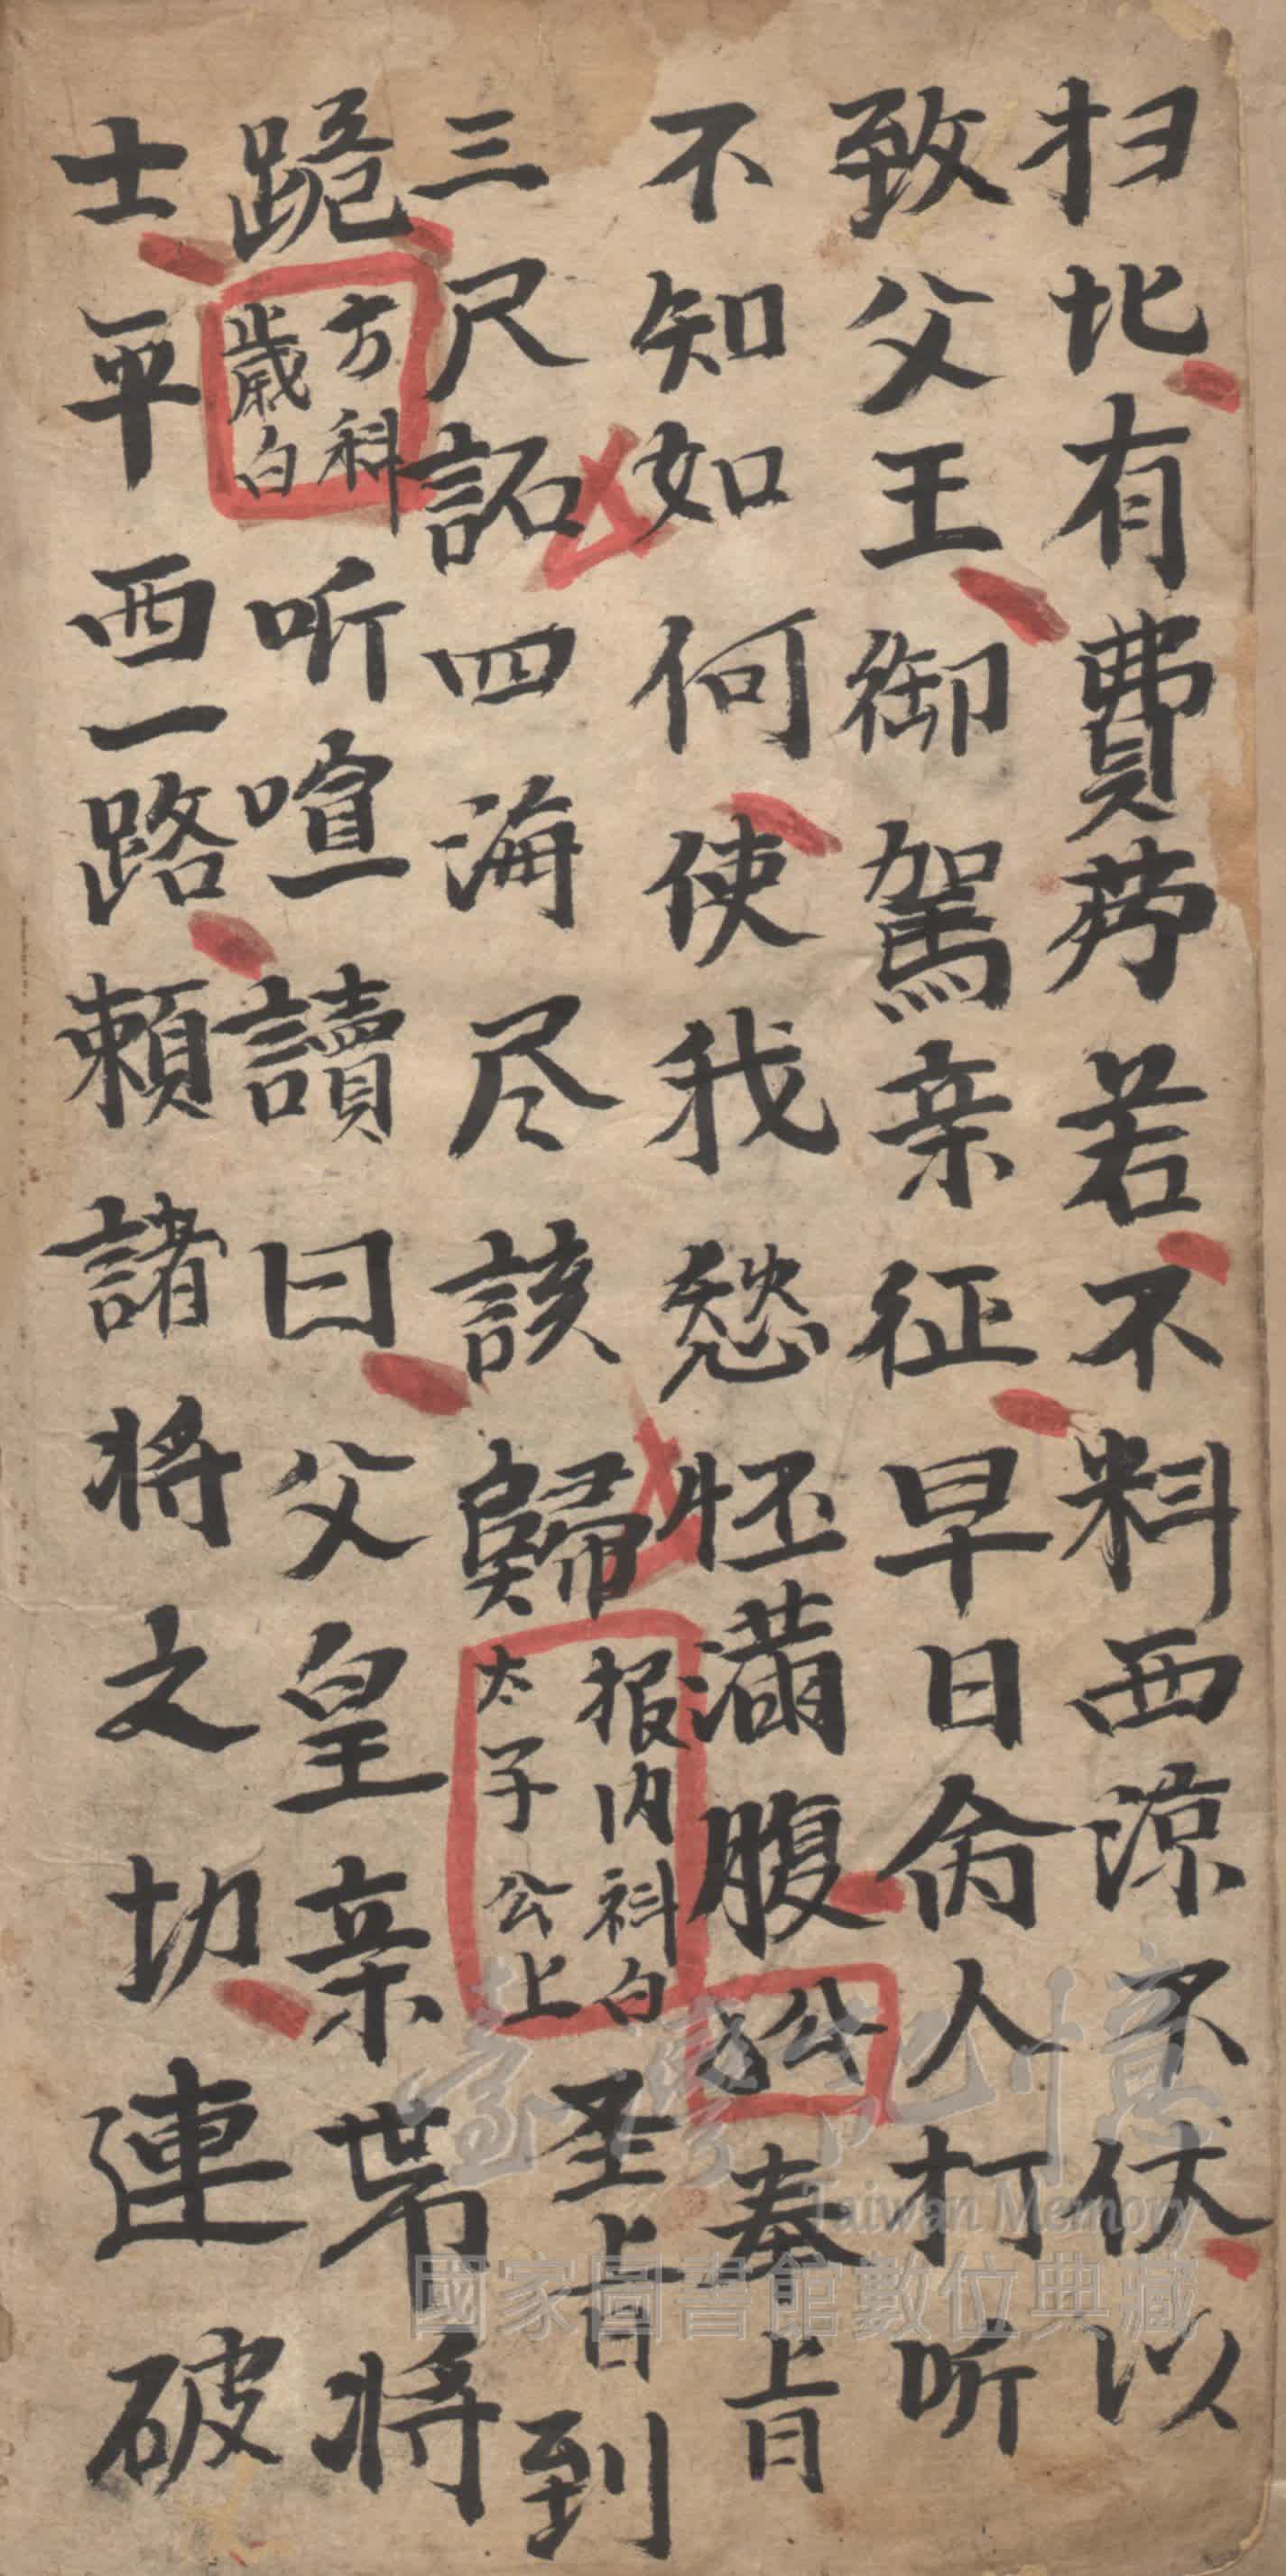 扫北有費劳若不料西涼不伏以
致父王御駕亲征早日命人打听
不知如何使我愁怀满腹 公白 奏上旨
三尺詔四海尽該歸 报内科白太子公上 圣旨到
跪 方科歲白 听喧讀曰父皇亲带將
士平西一路賴諸將之切連破
臺灣記憶
Taiwan Memory
國家圖書館數位典藏